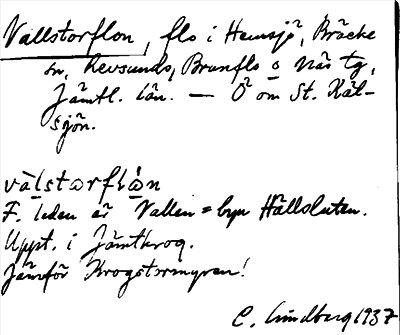 Vallstorflon, flo i Hemsjö, Bräcke
sn, Revsunds, Brunflo o Näs tg,
Jämtl. län. — Ö om St. Käl-
sjön.
välstorflán
F. leden är Vallen = byn Hällsluten.
Uppt. i Jämtkrog.
Jämför Krogstormyren!
C. Lindberg 1937